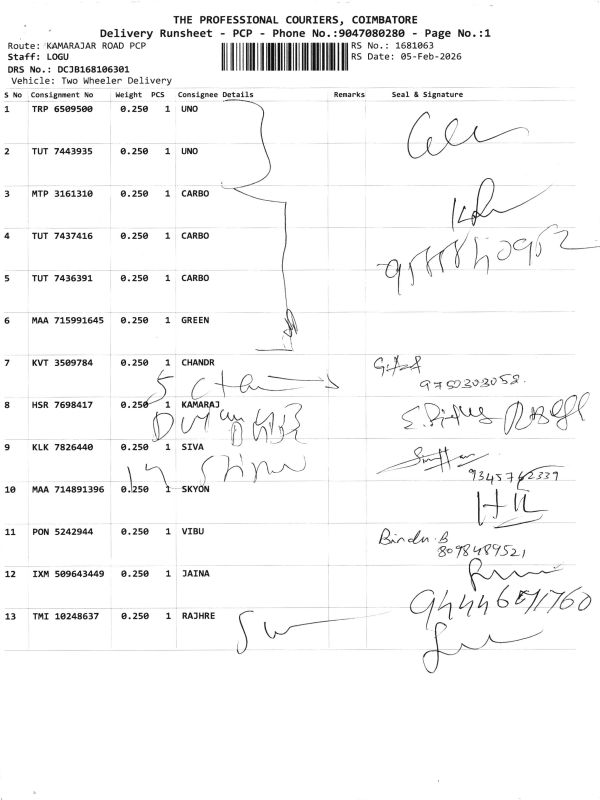 THE PROFESSIONAL COURIERS, COIMBATORE
Delivery Runsheet - PCP - Phone No.:9047080280 - Page No.:1
Route: KAMARAJAR ROAD PCP RS No.: 1681063
Staff: LOGU RS Date: 05-Feb-2026
DRS No.: DCJB168106301
Vehicle: Two Wheeler Delivery
S No Consignment No Weight PCS Consignee Details Remarks Seal & Signature
1 TRP 6509500 0.250 1 UNO
2 TUT 7443935 0.250 1 UNO
3 MTP 3161310 0.250 1 CARBO
4 TUT 7437416 0.250 1 CARBO
5 TUT 7436391 0.250 1 CARBO
6 MAA 715991645 0.250 1 GREEN
7 KVT 3509784 0.250 1 CHANDR
9750303058.
8 HSR 7698417 0.250 1 KAMARAJ
9 KLK 7826440 0.250 1 SIVA
9345762339
10 MAA 714891396 0.250 1 SKYON
11 PON 5242944 0.250 1 VIBU
Bindu.B
8098489521
12 IXM 509643449 0.250 1 JAINA
13 TMI 10248637 0.250 1 RAJHRE